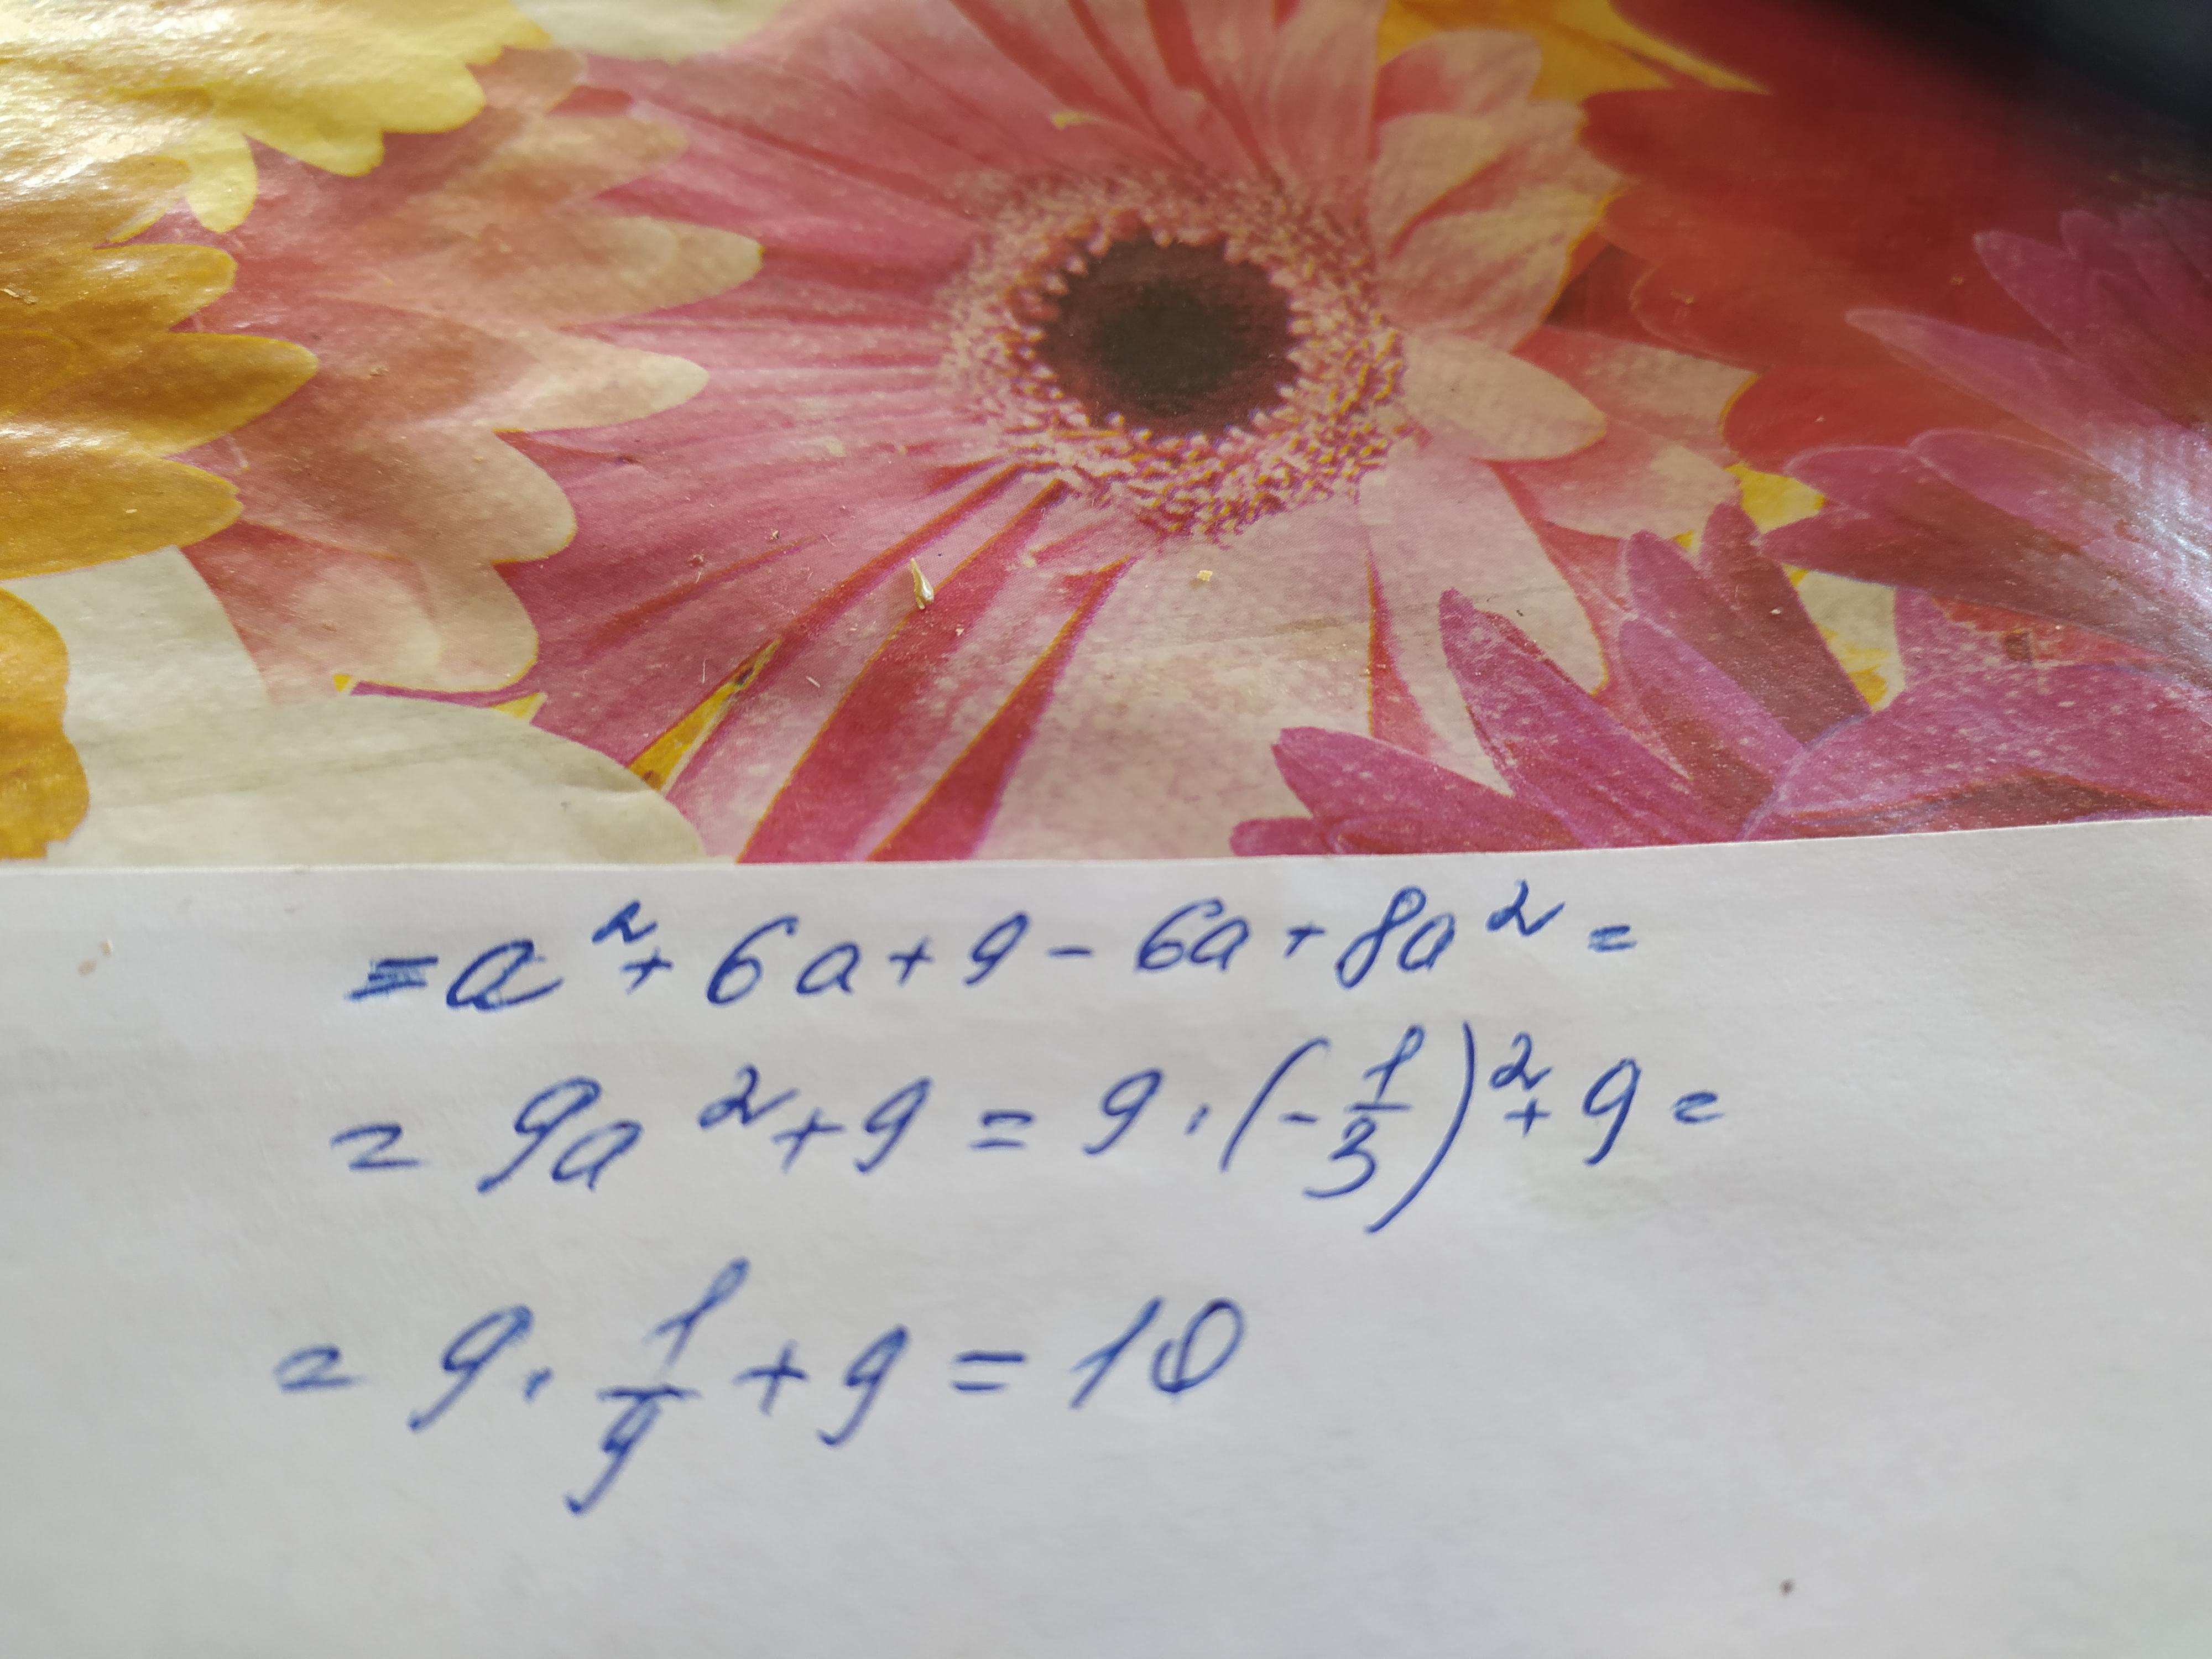 = a² + 6a + 9 - 6a + 8a² =
= 9a² + 9 = 9 · (-1/3)² + 9 =
= 9 · 1/9 + 9 = 10